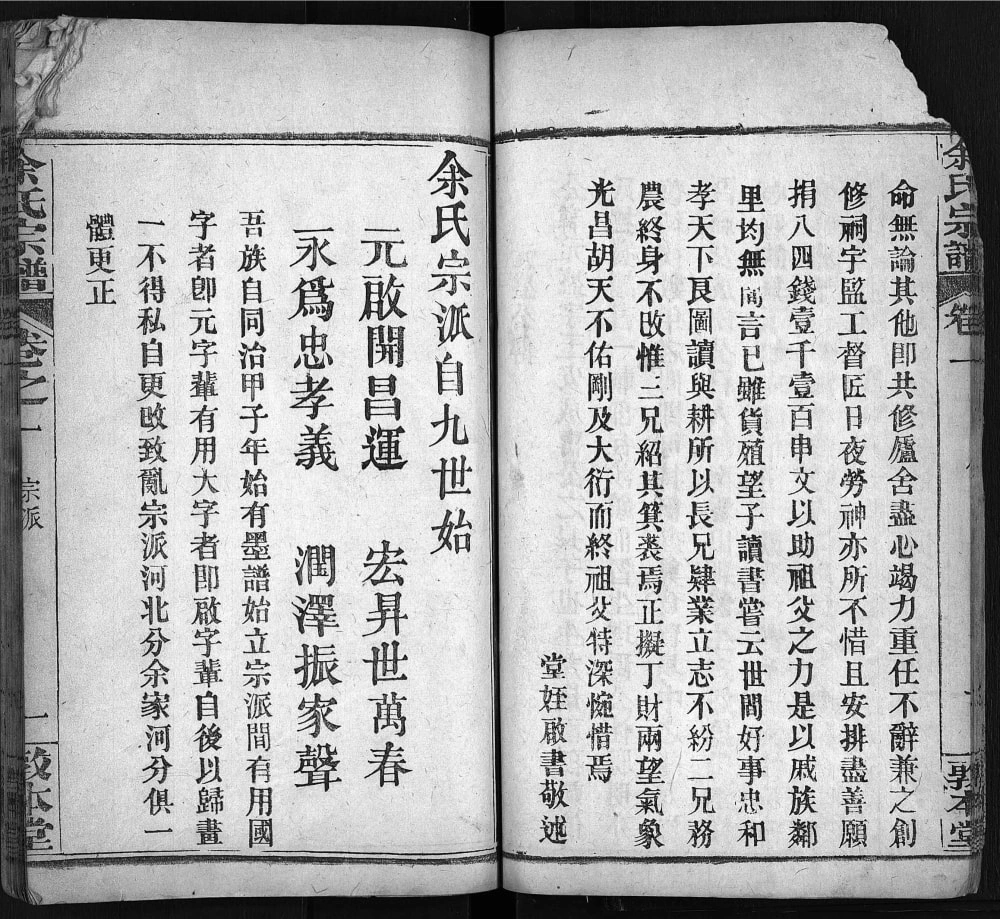 余氏宗譜 卷一 敦本堂
命無論其他卽共修廬舍盡心竭力重任不辭兼之創
修祠宇監工督匠日夜勞神亦所不惜且安排盡善願
捐八四錢壹千壹百串文以助祖父之力是以戚族鄰
里均無間言已雖貨殖望子讀書嘗云世間好事忠和
孝天下良圖讀與耕所以長兄肄業立志不紛二兄務
農終身不改惟三兄紹其箕裘焉正擬丁財兩望氣象
光昌胡天不佑剛及大衍而終祖父特深惋惜焉
堂姪啟書敬述
余氏宗派自九世始
元啟開昌運 宏昇世萬春
永爲忠孝義 潤澤振家聲
吾族自同治甲子年始有墨譜始立宗派間有用國
字者卽元字輩有用大字者卽啟字輩自後以歸畫
一不得私自更改致亂宗派河北分余家河分俱一
體更正
余氏宗譜 卷之一 宗派 一 敦本堂